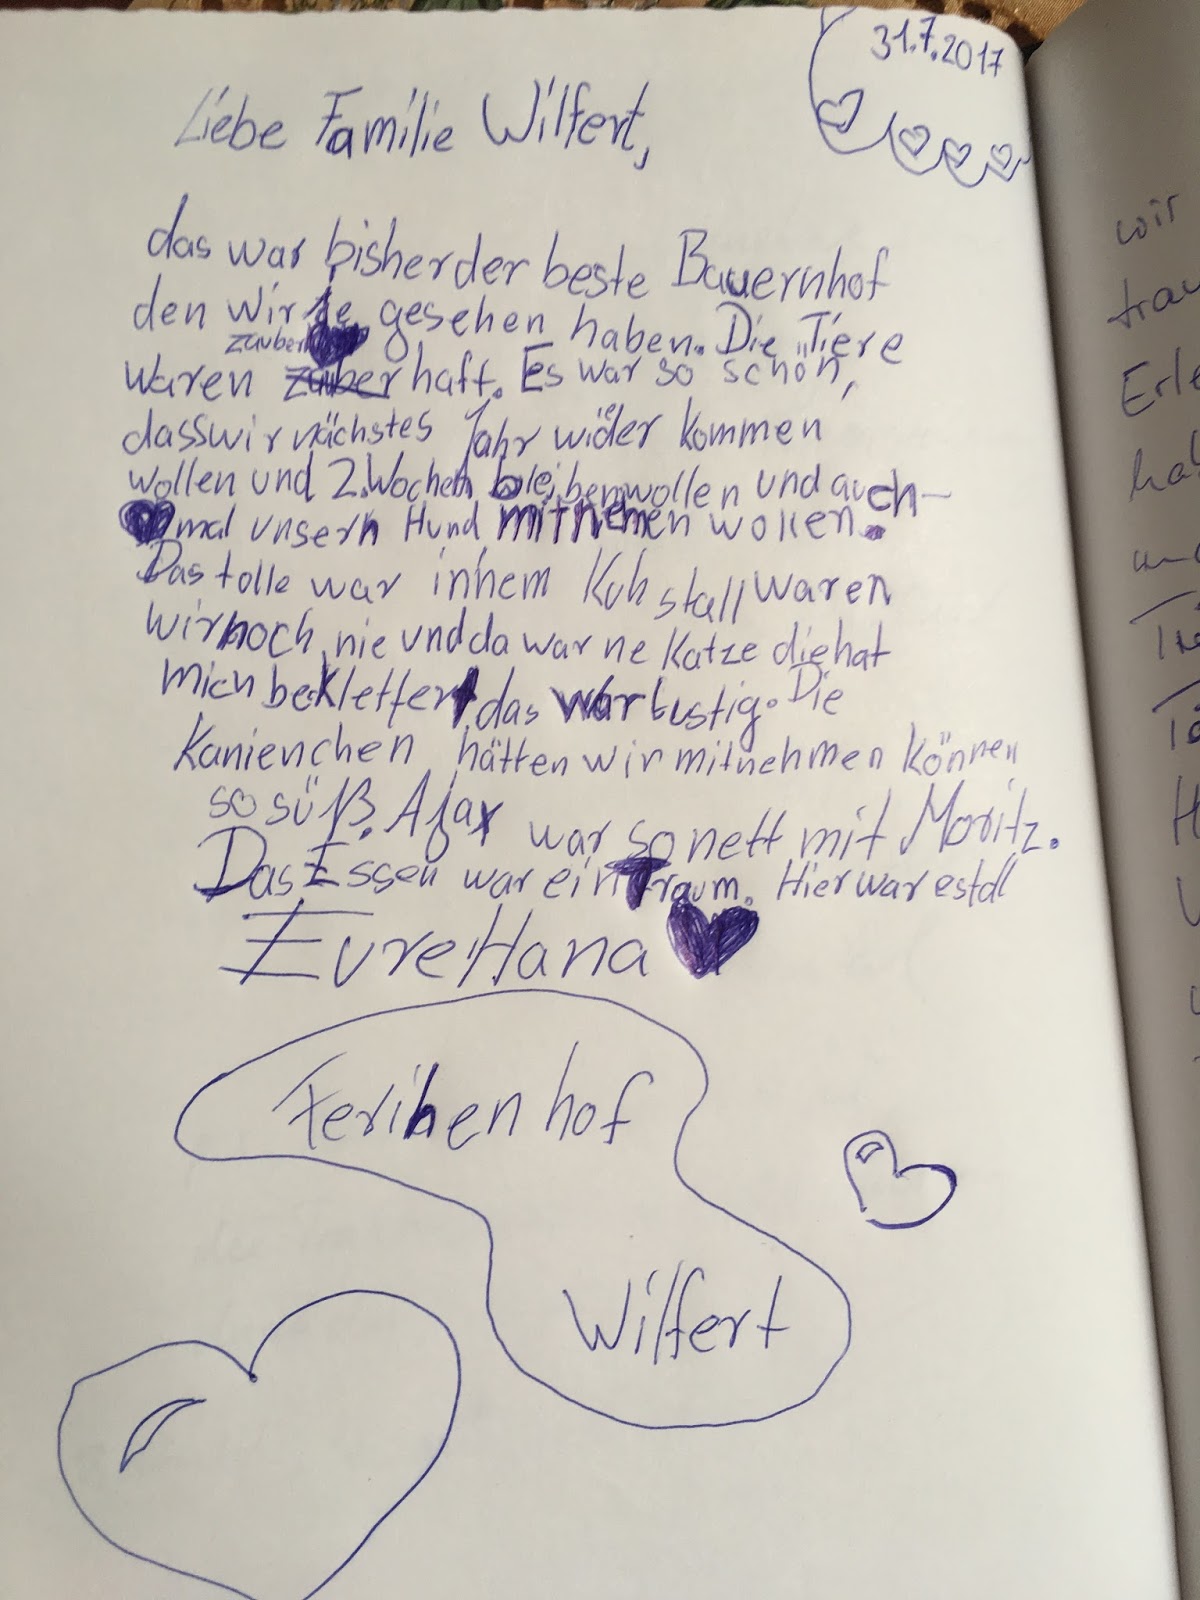 31.7.2017
Liebe Familie Wilfert,
das war bisher der beste Bauernhof
den wir je gesehen haben. Die Tiere
zauber
waren zauber haft. Es war so schön,
dass wir nächstes Jahr wieder kommen
wollen und 2. Wochen bleiben wollen und auch
mal unsern Hund mitnemen wollen.
Das tolle war in ihem Kuh stall waren
wir noch nie und da war ne Katze die hat
mich beklettert das war lustig. Die
Kanienchen hätten wir mitnehmen können
so süß. Ajax war so nett mit Moritz.
Das Essen war ein Traum. Hier war es toll
Eure Hana
Ferihen hof
Wilfert
wir
trau
Erle